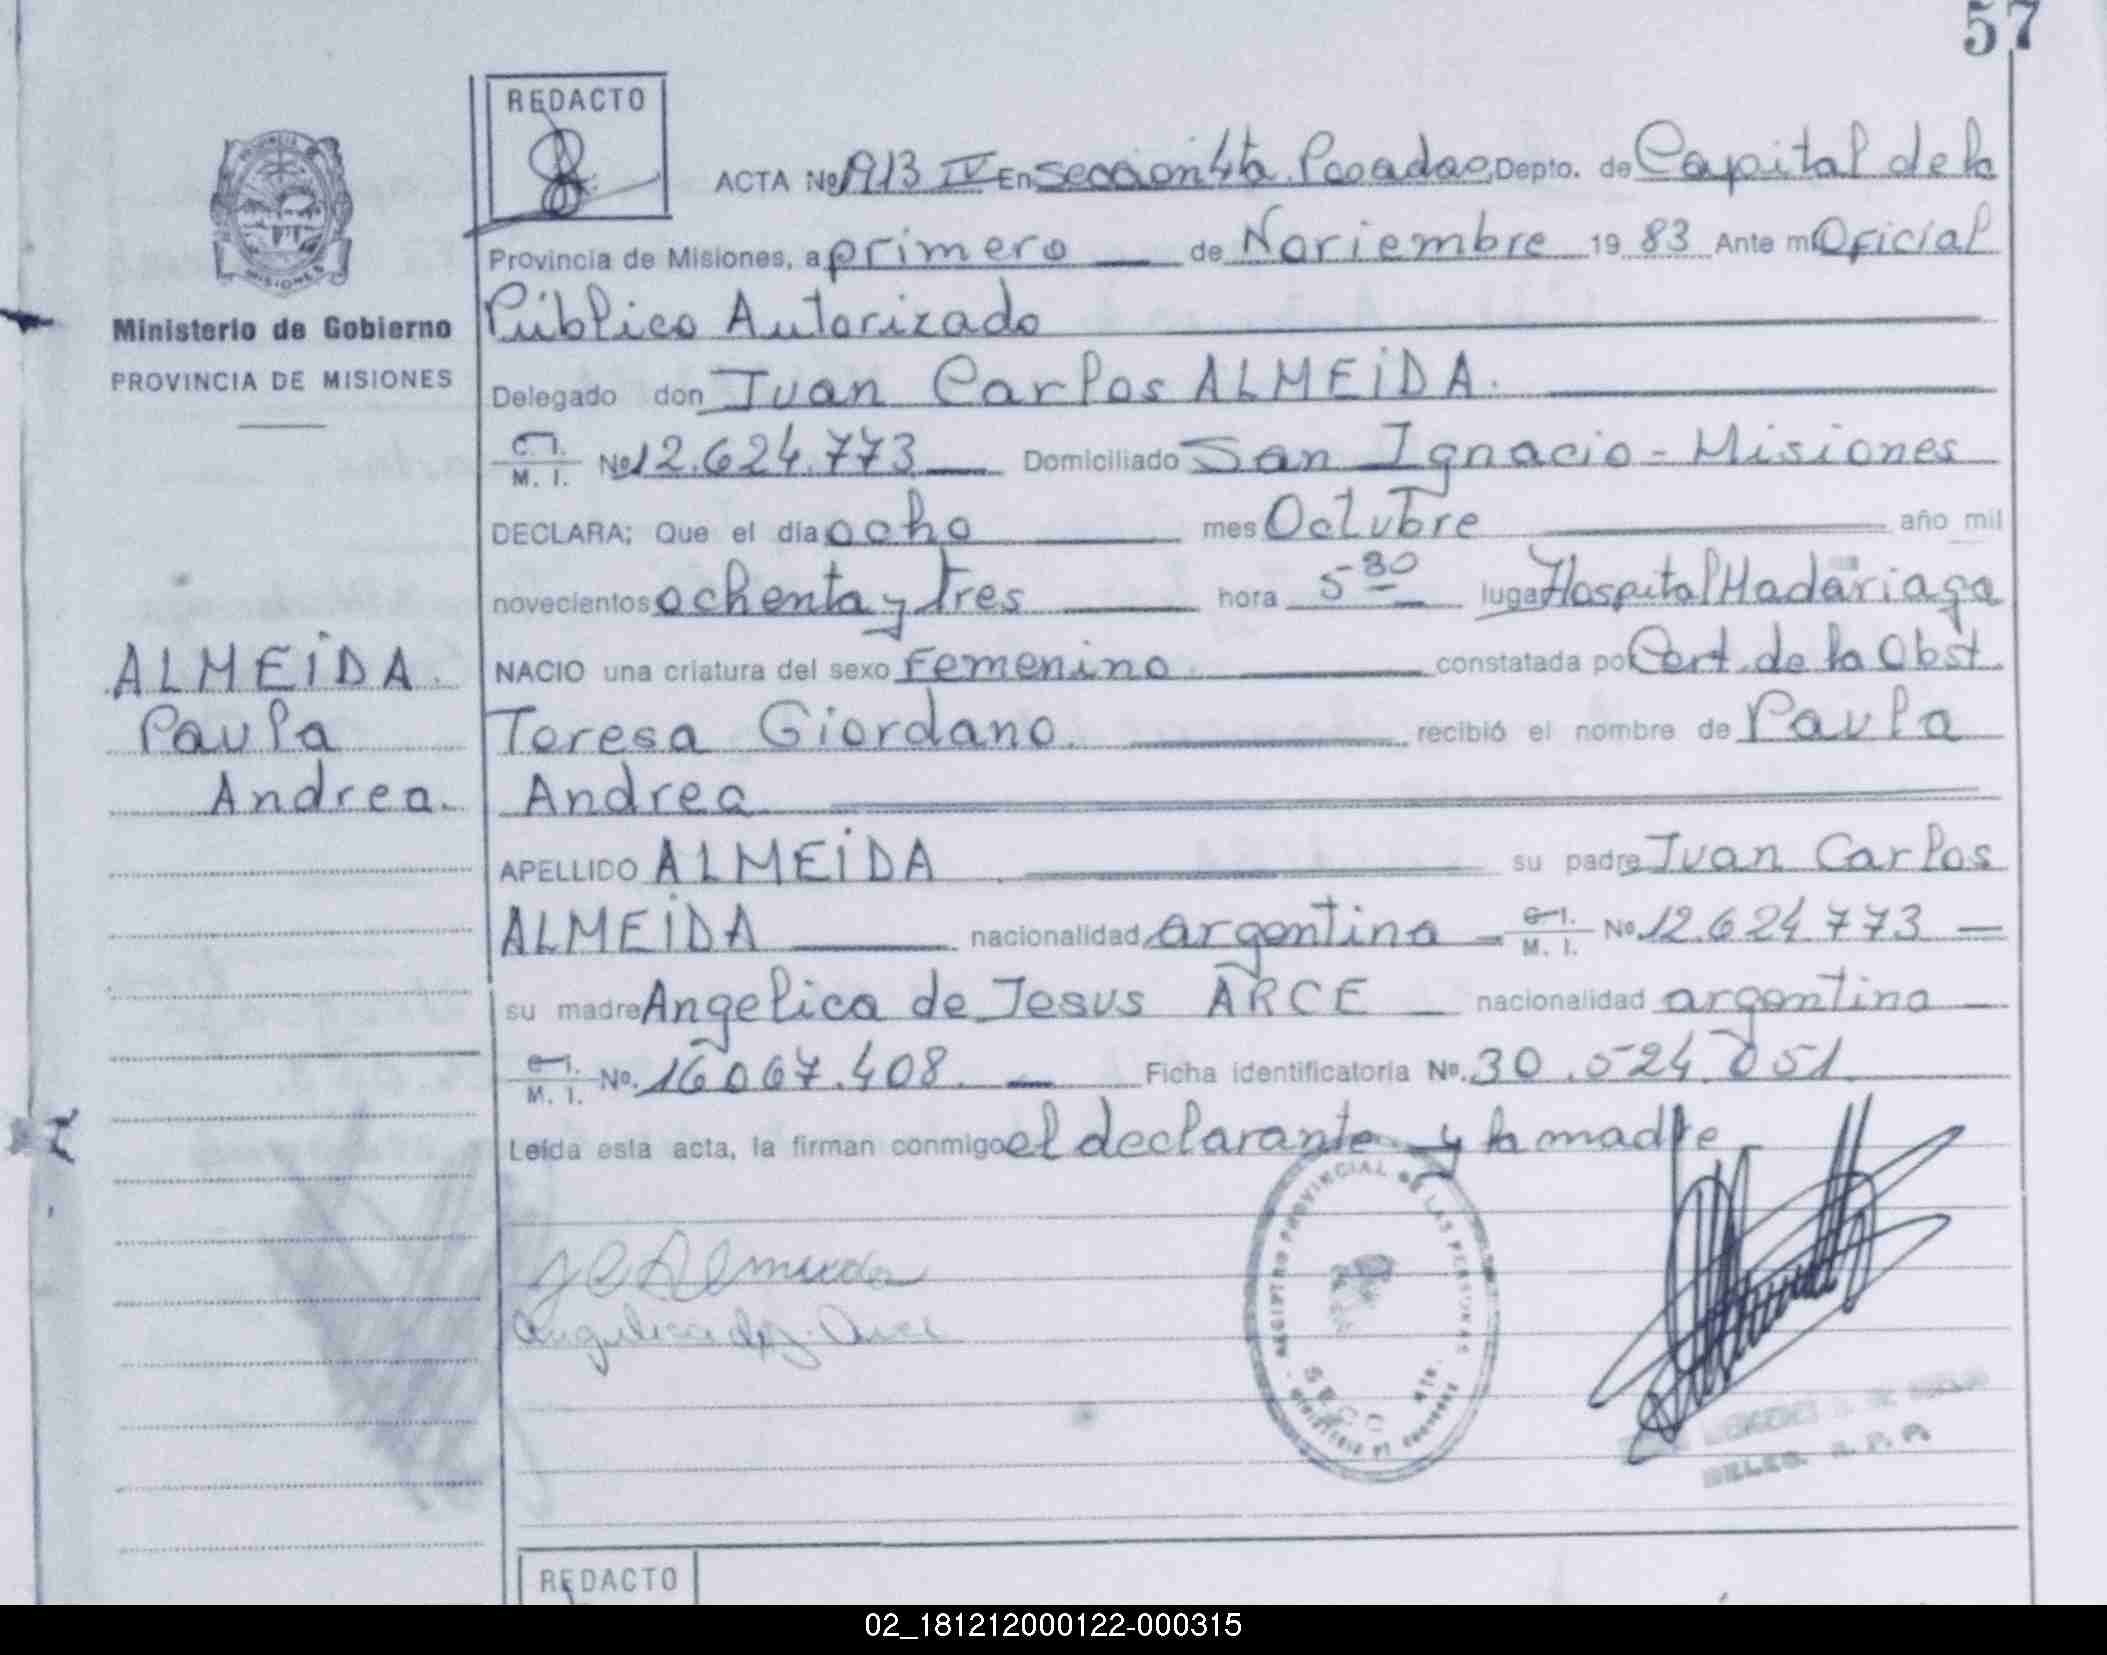 57
REDACTO
ACTA Nº 913 IV En Sección 4ta. Posadas, Depto. de Capital de la
Provincia de Misiones, a primero de Noviembre 19 83 Ante mi Oficial
Ministerio de Gobierno
PROVINCIA DE MISIONES
Público Autorizado
Delegado don Juan Carlos ALMEIDA.
C. I.
M. I. Nº 12.624.773 Domiciliado San Ignacio - Misiones
DECLARA; Que el día ocho mes Octubre año mil
novecientos ochenta y tres hora 5 30 lugar Hospital Madariaga
NACIO una criatura del sexo Femenino. constatada por Cert. de la Obst.
Teresa Giordano. recibió el nombre de Paula
Andrea
ALMEIDA.
Paula
Andrea.
APELLIDO ALMEIDA su padre Juan Carlos
ALMEIDA nacionalidad argentina C. I.
M. I. Nº 12.624.773
su madre Angelica de Jesus ARCE nacionalidad argentina
C. I.
M. I. Nº. 16067.408. Ficha identificatoria Nº. 30.524.051
Leída esta acta, la firman conmigo el declarante y la madre
J C Almeida
Angelica de J. Arce
REGISTRO PROVINCIAL DE LAS PERSONAS
SECC 4ta.
MINISTERIO DE GOBIERNO
DELEG. R. P. P.
REDACTO
02_181212000122-000315